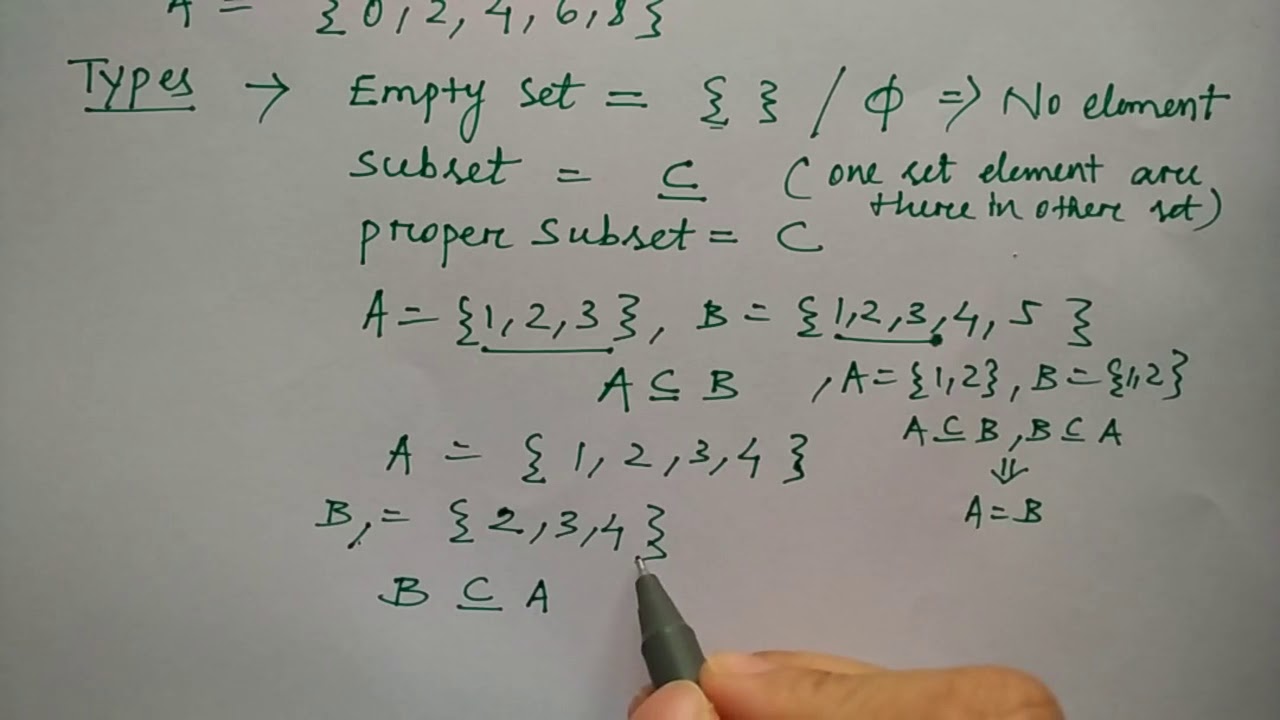 A = {0, 2, 4, 6, 8}
Types → Empty set = { } / ϕ ⇒ No element
subset = ⊆ (one set element are
there in other set)
proper subset = ⊂
A = {1, 2, 3}, B = {1, 2, 3, 4, 5}
A ⊆ B , A = {1, 2}, B = {1, 2}
A ⊆ B, B ⊆ A
⇓
A = { 1, 2, 3, 4 }
A = B
B, = { 2, 3, 4 }
B ⊆ A